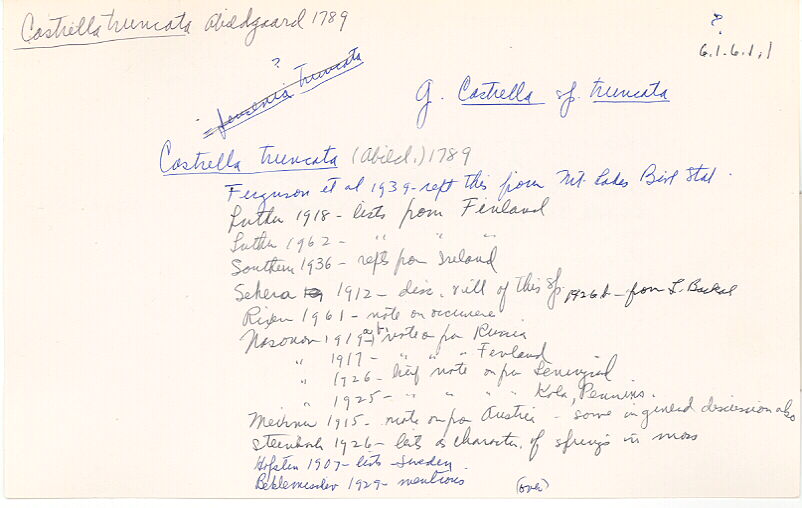 Castrella truncata Abildgaard 1789
?
6.1.6.1.1
?
truncata
g. Castrella sp. truncata
Castrella truncata (Abild.) 1789
Ferguson et al 1939 - rept this from Mt. Lakes Biol Stat.
Luther 1918 - lists from Finland
Luther 1962 - " " "
Southern 1936 - repts from Ireland
Sekera 1912 - disc. of this sp.
Rixen 1961 - note on occurrence
Nasonov 1919 a, b - note on from Russia
" 1917 - " " " Finland
" 1926 - brief note on from Leningrad
" 1925 - " " " " Kola, Pennins.
Meixner 1915 - note on from Austria - some in general discussion also
Steinbock 1926 - lists as character. of springs in moss
Hofsten 1907 - lists - Sweden.
Beklemischev 1929 - mentions (over)